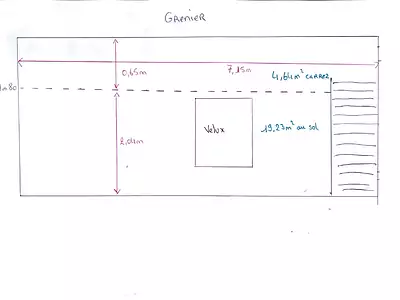 GRENIER
0,65m
7,15m
4,64m² CARREZ
1m80
Velux
19,23m² au sol
2,04m